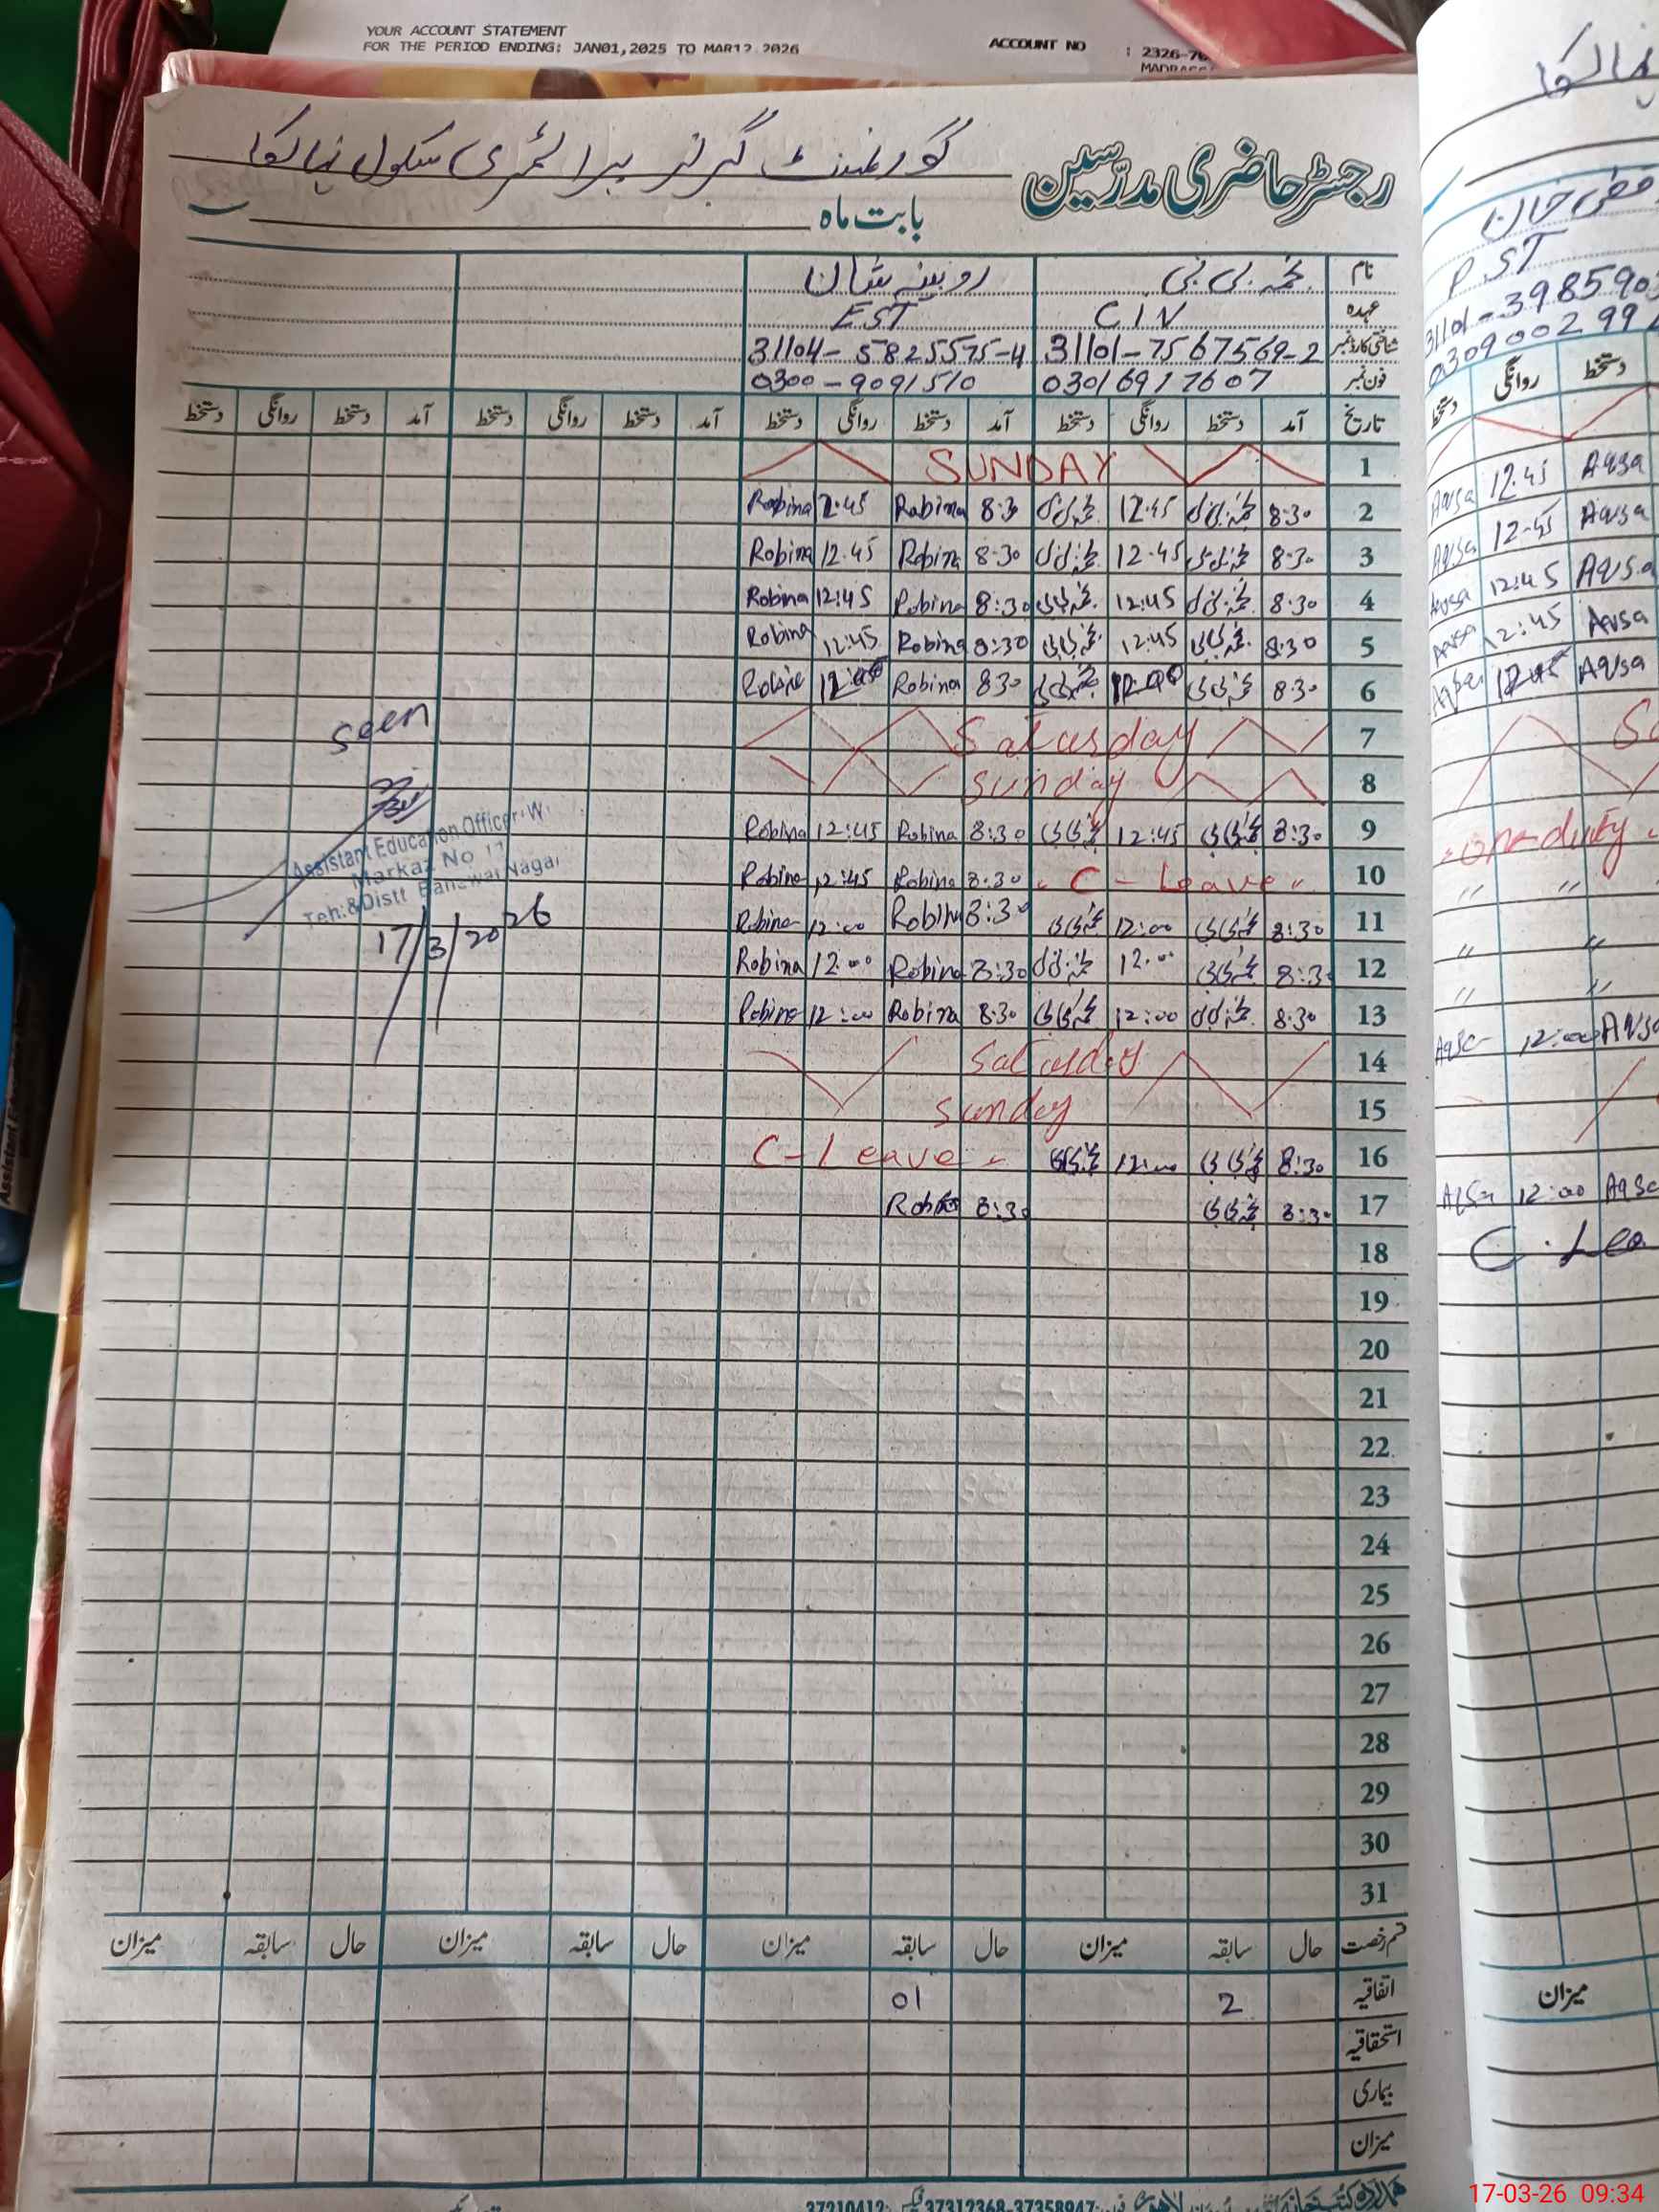 YOUR ACCOUNT STATEMENT
FOR THE PERIOD ENDING: JAN01,2025 TO MAR12,2026
ACCOUNT NO : 2326-
رجسٹر حاضری مدرّسین گورنمنٹ گرلز پرائمری سکول
بابت ماہ
نام نجمہ بی بی روبینہ شان
عہدہ CIV EST
شناختی کارڈ نمبر 31101-7567569-2 31104-5825575-4
فون نمبر 03016917607 0300-9091510
تاریخ آمد دستخط روانگی دستخط آمد دستخط روانگی دستخط آمد دستخط روانگی دستخط آمد دستخط روانگی دستخط
1 SUNDAY
2 8:30 نجمہ بی بی 12:45 نجمہ بی بی 8:3 Robina 12:45 Robina
3 8:30 نجمہ بی بی 12:45 نجمہ بی بی 8:30 Robina 12:45 Robina
4 8:30 نجمہ بی بی 12:45 نجمہ بی بی 8:30 Robina 12:45 Robina
5 8:30 نجمہ بی بی 12:45 نجمہ بی بی 8:30 Robina 12:45 Robina
6 8:30 نجمہ بی بی نجمہ بی بی 8:30 Robina
7 Saturday
8 Sunday
9 8:30 نجمہ بی بی 12:45 نجمہ بی بی 8:30 Robina 12:45 Robina
10 C-Leave 8:30 Robina 12:45 Robina
11 8:30 نجمہ بی بی 12:00 نجمہ بی بی 8:30 Robina 12:00 Robina
12 8:30 نجمہ بی بی 12:00 نجمہ بی بی 8:30 Robina 12:00 Robina
13 8:30 نجمہ بی بی 12:00 نجمہ بی بی 8:30 Robina 12:00 Robina
14 Saturday
15 Sunday
16 8:30 نجمہ بی بی 12:00 نجمہ بی بی C-Leave
17 8:30 نجمہ بی بی 8:30
18
19
20
21
22
23
24
25
26
27
28
29
30
31
قسم رخصت حال سابقہ میزان حال سابقہ میزان حال سابقہ میزان حال سابقہ میزان
اتفاقیہ 2 01
استحقاقیہ
بیماری
میزان
seen
Assistant Education Officer-W
Markaz No 11
Teh:&Distt Bahawalnagar
17/3/2026
37210412 37312368-37358947
P.ST
31101-398590
030900299
دستخط روانگی دستخط
Aqsa 12:45 Aqsa
Aqsa 12:45 Aqsa
Aqsa 12:45 Aqsa
Aqsa 12:45 Aqsa
Aqsa 12:45 Aqsa
on duty
Aqsa 12:00 Aqsa
Aqsa 12:00 Aqsa
C.Lea
میزان
17-03-26 09:34